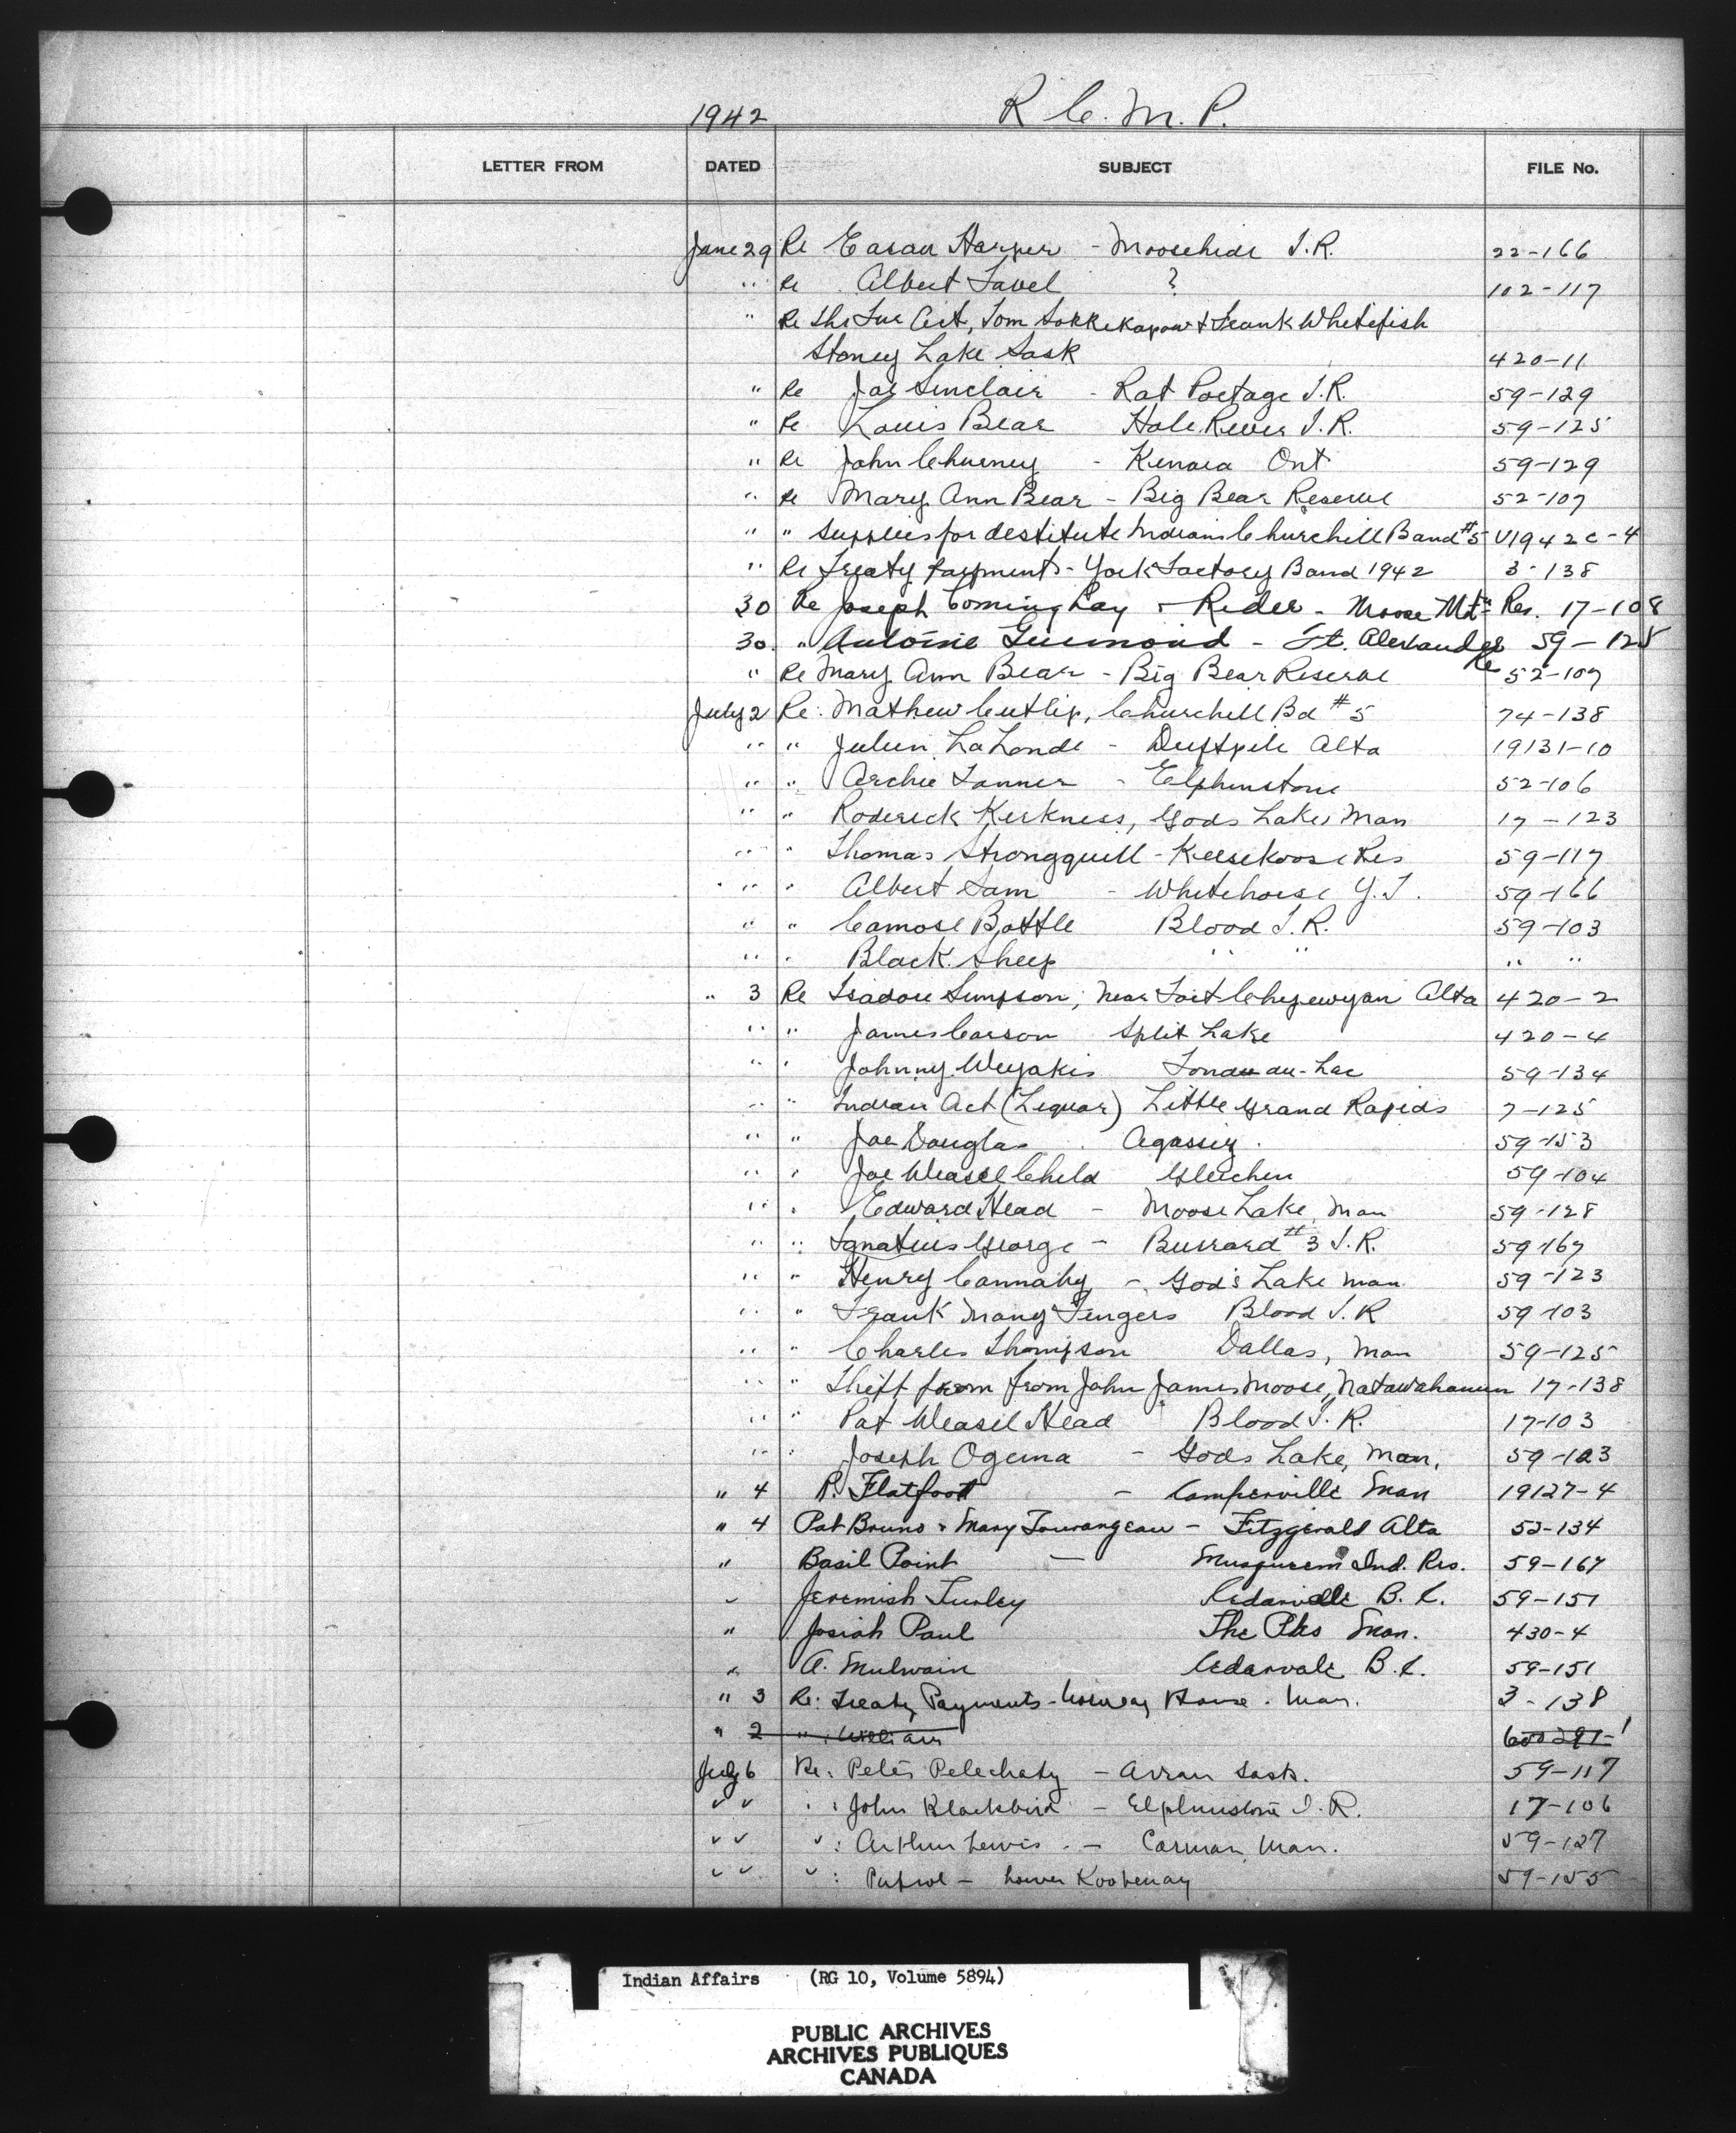 1942 R.C.M.P.
LETTER FROM DATED SUBJECT FILE No.
June 29 Re Harper - Moosehide I.R. 22-166
" Re Albert Favel ? 102-117
" Re The Fur Act, Tom & Frank Whitefish
Stoney Lake Sask 420-11
" Re Joe Sinclair - Rat Portage I.R. 59-129
" Re Louis Bear Hole River I.R. 59-125
" Re John - Kenora Ont 59-129
" Re Mary Ann Bear - Big Bear Reserve 52-107
" " Supplies for destitute Indians Churchill Band #5 V1942c-4
" Re Treaty Payments - York Factory Band 1942 3-138
30 Re Joseph Coming Day & Rider - Moose Mtn Res. 17-108
30. " Antoine Guimond - Ft. Alexander 59-125
" Re Mary Ann Bear - Big Bear Reserve Re 52-107
July 2 Re: Mathew Cutlip, Churchill Bd #5 74-138
" " Julien LaLonde - Driftpile Alta 19131-10
" " Archie Tanner - Elphinstone 52-106
" " Roderick Kirkness, Gods Lake, Man 17-123
" " Thomas Strongquill - Keesekoose Res 59-117
" " Albert Sam - Whitehorse Y.T. 59-166
" " Camose Bottle Blood I.R. 59-103
" " Black Sheep " " " "
" 3 Re Isadore Simpson, Near Fort Chipewyan Alta 420-2
" " James Carson Split Lake 420-4
" " Johnny Weyakis Fond au-Lac 59-134
" " Indian Act (Liquor) Little Grand Rapids 7-125
" " Joe Douglas. Agassiz. 59-153
" " Joe Weasel Child Gleichen 59-104
" " Edward Head - Moose Lake, Man 59-128
" " Ignatius George - Burrard #3 I.R. 59-167
" " Henry Cannaby - God's Lake Man 59-123
" " Frank Many Fingers Blood I.R 59-103
" " Charles Thompson Dallas, Man 59-125
" " Theft from from John James Moose, 17-138
" " Pat Weasel Head Blood I.R. 17-103
" " Joseph Ogema - Gods Lake, Man. 59-123
" 4 P. Flatfoot - Camperville Man 19127-4
" 4 Pat Bruno & Mary Tourangeau - Fitzgerald Alta 52-134
" Basil Point — Ind. Res. 59-167
" Jeremish Turley B.C. 59-151
" Josiah Paul The Pas Man. 430-4
" A. Mulwain Cedarvale B.C. 59-151
" 3 Re: Treaty Payments - Norway House. Man. 3-138
" 2 " : William
July 6 Re: Peter Pelechaty - Arran Sask. 59-117
" " " : John Blackbird - Elphinstone I.R. 17-106
" " " : Arthur Lewis. - Carman, Man. 59-127
" " " : Patrol - Lower Kootenay 59-155
Indian Affairs (RG 10, Volume 5894)
PUBLIC ARCHIVES
ARCHIVES PUBLIQUES
CANADA